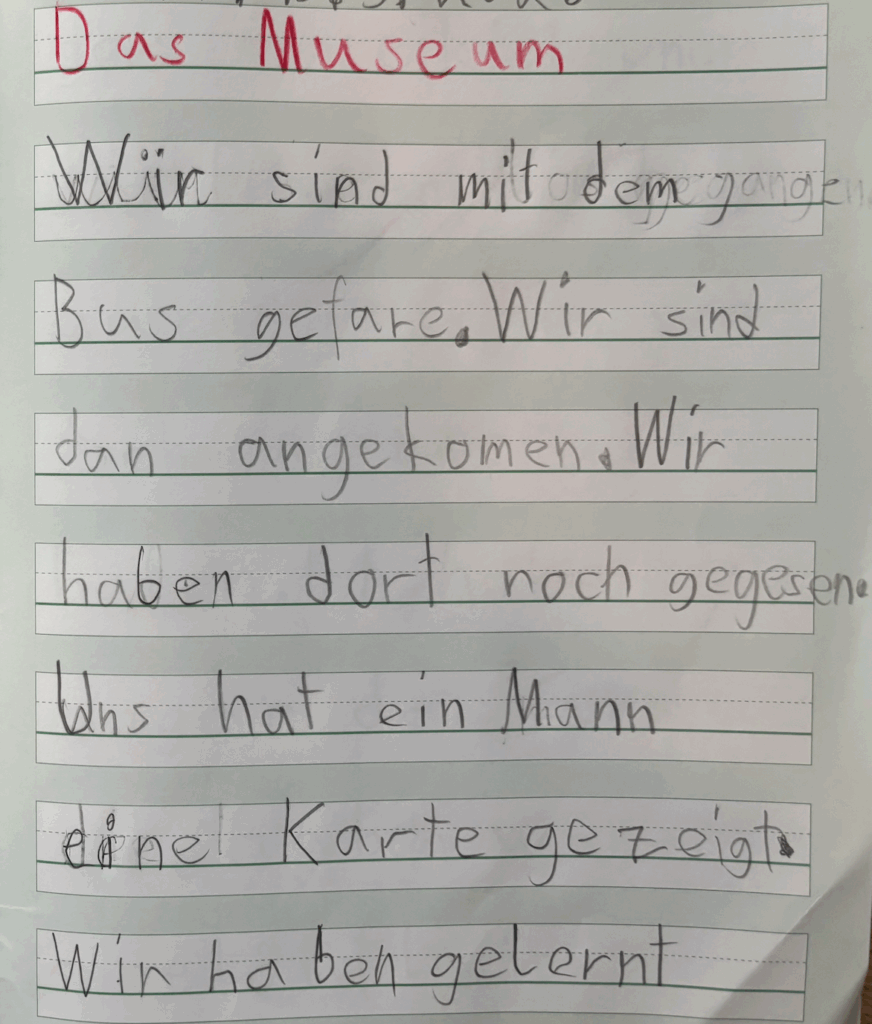 Das Museum
Wir sind mit dem
Bus gefare. Wir sind
dan angekomen. Wir
haben dort noch gegesen.
Uns hat ein Mann
eine Karte gezeigt.
Wir haben gelernt